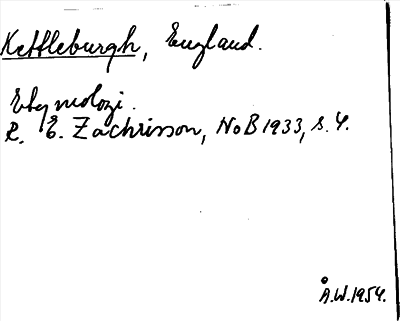 Kettleburgh, England.
Etymologi.
R. E. Zachrisson, NoB 1933, s. 4.
Å.W. 1954.